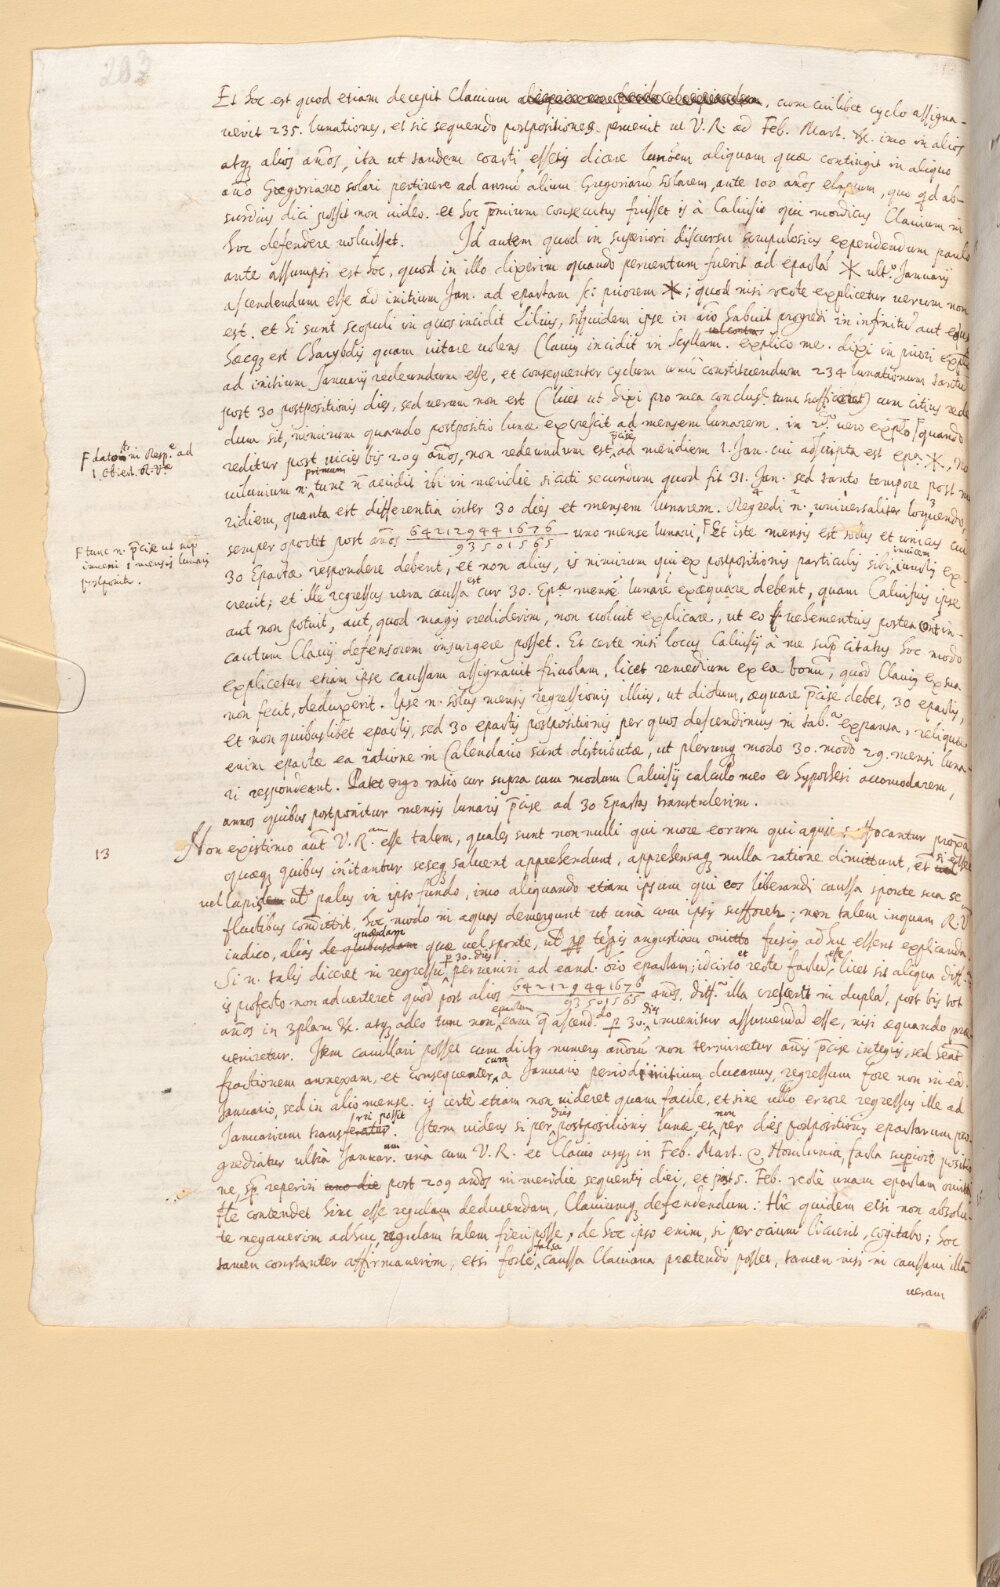 203
Et hoc est quod etiam decepit Clavium, cum cuilibet cyclo assigna-
verit 235. lunationes, et sic sequendo postpositiones pervenit ut V. R. ad Feb. Mart. &c. imo in alios
atq. alios años, ita ut tandem coacti essetis dicere lunãoem aliquam quæ contingit in aliquo
año Gregoriano solari pertinere ad annũ alium Gregorianũ solarem, ante 100 años elapsum, quo qd ab-
surdius dici possit non video. et hoc pmium consecutus fuisset is à Calvisio qui mordicus Clavium in
hoc defendere voluisset. Id autem quod in superiori discursu scrupulosius expendendum paulo
ante assumpsi est hoc, quod in illo dixerim quando perventum fuerit ad epactã * ult.º Januarij
ascendendum esse ad initium Jan. ad epactam sc: priorem *; quod nisi recte explicetur verum non
est. et hi sunt scopuli in quos incidit Lilius, siquidem ipse in año habuit progredi in infinitũ aut
hæcq. est Charybdis quam vitare volens Clavius incidit in Scyllam. explico me. dixi in priori
ad initium Januarij redeundum esse, et consequenter cyclum constituendum 234 lunationum tantũ
post 30 postpositionis dies, sed verum non est (licet ut dixi pro mea conclus.e tunc sufficeret) cum citius
dum sit, nimirum quando postpositio lunæ excrescit ad mensem lunarem. in vero F quando
F dato in Resp.e ad
1. Obiect. R. V.æ
reditur post vicies bis 209 años, non redeundum est pcise ad meridiem 1. Jan. cui adscripta est epa. *,
vilunium n. primum tunc ñ accidit ibi in meridie sicuti secundum quod fit 31. Jan. sed tanto tempore post me
ridiem, quanta est differentia inter 30 dies et mensem lunarem. Regredi n. universaliter loquendo
semper oportet post años 64 21 29 44 1676 / 93501565 uno mense lunari, F Et iste mensis est solus et unicus cui
F tunc n. pcise ut sup
inveni 1 mensis lunaris
postponitr.
30 Epactæ respondere debent, et non alius, is nimirum qui ex postpositionis particulis sibi invicem iunctis ex-
crevit; et ille regressus vera caussa est cur 30. Ep.æ mensẽ lunarẽ exæquare debent, quam Calvisius ipse
aut non potuit, aut, quod magis crediderim, non voluit explicare, ut eo vehementius postea in-
cautum Clavij defensorem insurgere posset. Et certe nisi locus Calvisij à me supra citatus hoc modo
explicetur etiam ipse caussam assignavit frivolam, licet remedium ex ea bonũ, quod Clavius ex sua
non fecit, deduxerit. Ipse n. solus mensis regressionis illius, ut dictum, æquare pcise debet, 30 epactis,
et non quibuslibet epactis, sed 30 epactis postpositionis per quos descendimus in tab.ª expansa, reliquæ
enim epactæ ea ratione in Calendario sunt distributæ, ut plerumq. modo 30. modo 29. mensi luna-
ri respondeant. Patet ergo ratio cur supra cum modum Calvisij calculo meo et hypothesi accomodarem,
annos quibus postponitur mensis lunaris pcise ad 30 Epactas transtulerim.
13
Non existimo aut V. R.am esse talem, quales sunt nonnulli qui more eorum qui aquis suffocantur
quæq. quibus innitantur seseq. salvent apprehendunt, apprehensaq. nulla ratione dimittunt, et si esset
vel lapis ut palus in ipso fundo, imo aliquando etiam ipsum qui eos liberandi caussa sponte sua se
fluctibus com̃ittit hoc modo in aquas demergunt ut unà cum ipsis suffocet; non talem inquam R. V.
indico, aliàs quædam quæ vel sponte, ut pp tẽpis angustiam omitto fusiq ad huc essent explicanda.
Si n. talis diceret in regressu p 30. dies perveniri ad eand. oĩo epactam; idcirco et recte factũ esse, licet sit aliqua diff.a
is profecto non adverteret quod post alios 64 21 29 44 1676 / 93501565 años, diff.a illa crescerit in duplã, post bis tot
años in 3plam &c. atq. adeo tum non epactam eam q ascend.do p 30. dies invenitur assumendã esse, nisi æquando
veniretur. Item cavillari posset cum dictus numerus añorũ non terminetur añis pcise integris, sed
fractionem annexam, et consequenter cum à Januario periodi initium ducamus, regressum fore non in eod.
Januario, sed in alio mense. is certè etiam non videret quam facile, et sine ullo errore regressus ille ad
Januarium transferri possit. Item videns si per dies postpositionis lunæ et non per dies postpositionis epactarum pro
grediatur ultra Januar.um unà cum V. R. et Clavio usq. in Feb. Mart. &c. Novilunia, facta superiori positio
ne, sp reperiri post 209 años in meridie sequentis diei, et post 5. Feb. recte unam epactam omitti
Ille contendet hinc esse regulam deducendam, Claviumq. defendendum: Hic quidem etsi non absolu-
te negaverim adhuc, regulam talem fieri posse, de hoc ipso enim, si per ocium licuerit, cogitabo; hoc
tamen constanter affirmaverim, etsi forte falsa caussa Claviana prætendi posset, tamen nisi in caussam illã
veram